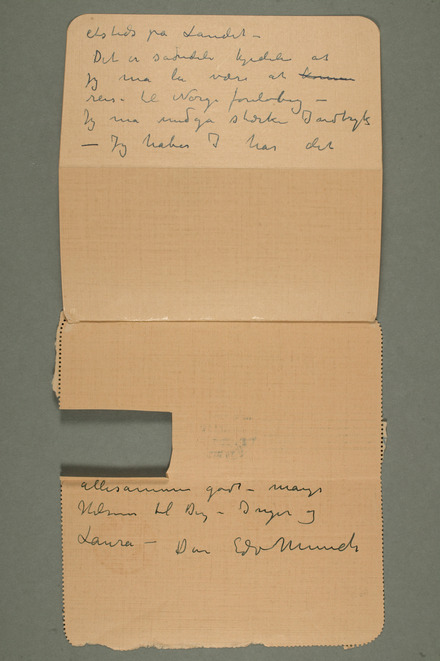 etsteds på Landet –
Det er særdeles kjedelig at
Jeg må la være at komme
reise til Norge foreløbig –
Jeg må undgå stærke Indtryk
– Jeg håber I har det
allesammen godt – mange
Hilsener til Dig – Inger og
Laura – Din Edv Munch